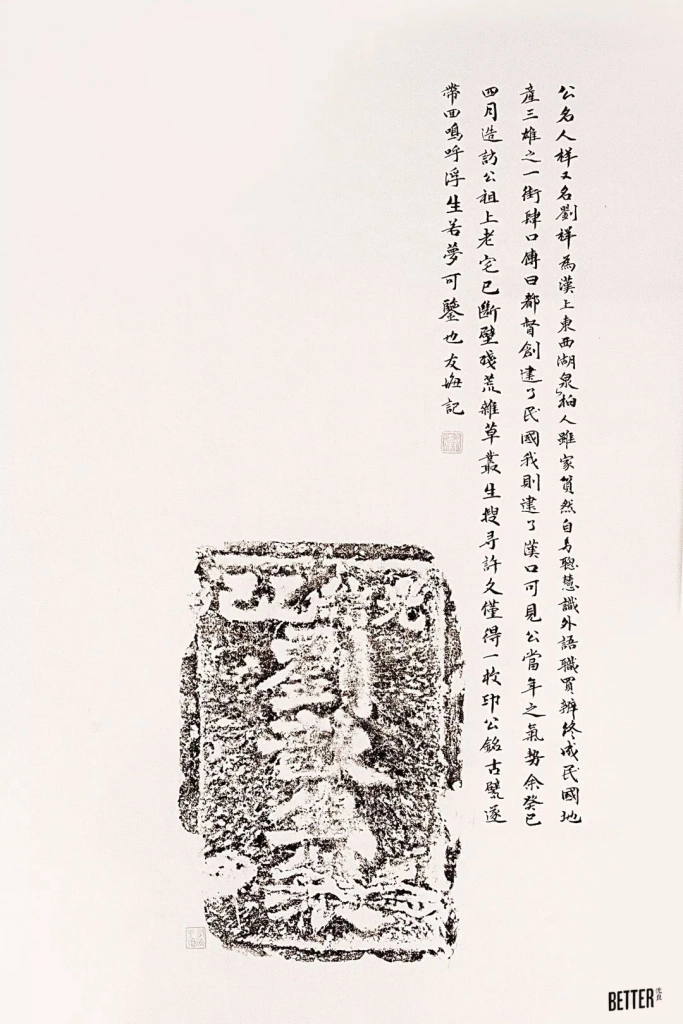 公名人祥又名劉祥為漢上東西湖泉柏人雖家貧然自幼聰慧識外語職買辦終成民國地
產三雄之一街肆口傳曰都督創建了民國我則建了漢口可見公當年之氣勢余癸巳
四月造訪公祖上老宅已斷壁殘荒雜草叢生搜尋許久僅得一枚印公銘古甓遂
帶回嗚呼浮生若夢可鑒也友海記
光緒乙巳
劉歆生
BETTER